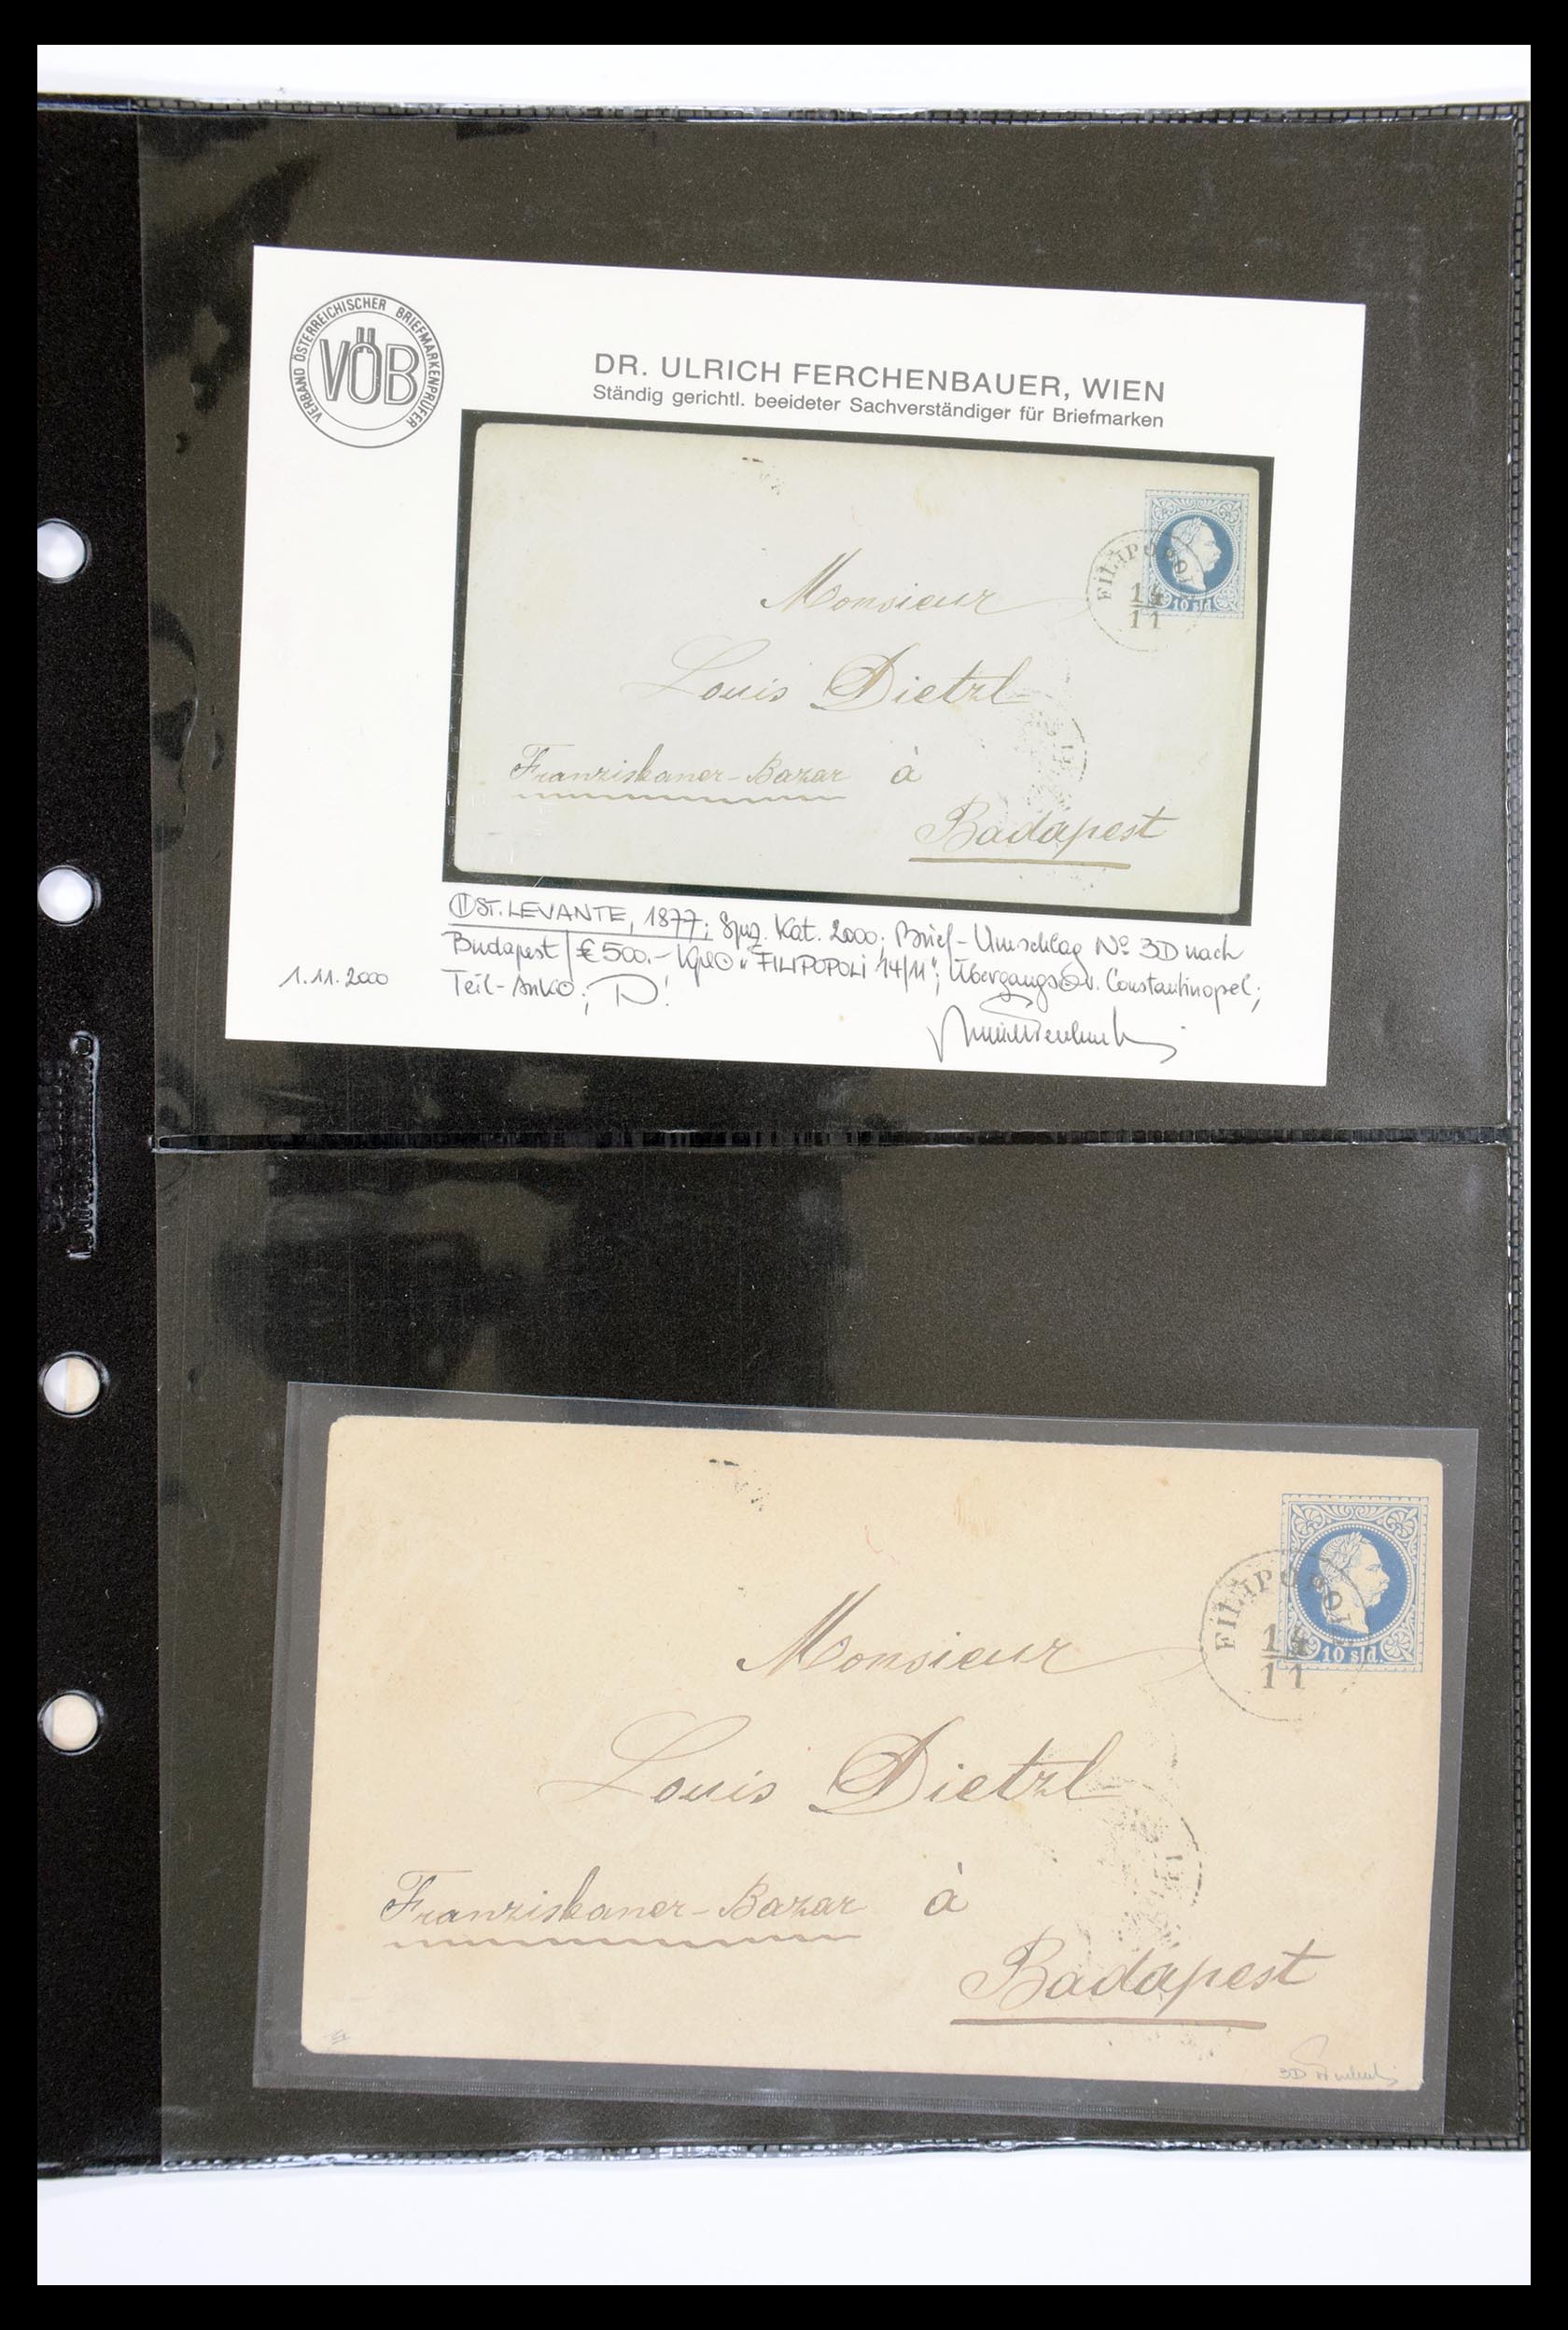 VERBAND ÖSTERREICHISCHER BRIEFMARKENPRÜFER
VÖB
DR. ULRICH FERCHENBAUER, WIEN
Ständig gerichtl. beeideter Sachverständiger für Briefmarken
FILIPOPOLI
14
11
10 sld.
Monsieur
Louis Dietzl
Franziskaner-Bazar à
Budapest
ÖST. LEVANTE, 1877; Spez. Kat. 2000; Brief-Umschlag No 3D nach
Budapest € 500.- "FILIPOPOLI 14/11"; Übergangs v. Constantinopel;
1.11.2000
Teil-Ank
FILIPOPOLI
14
11
10 sld.
Monsieur
Louis Dietzl
Franziskaner-Bazar à
Budapest
3D